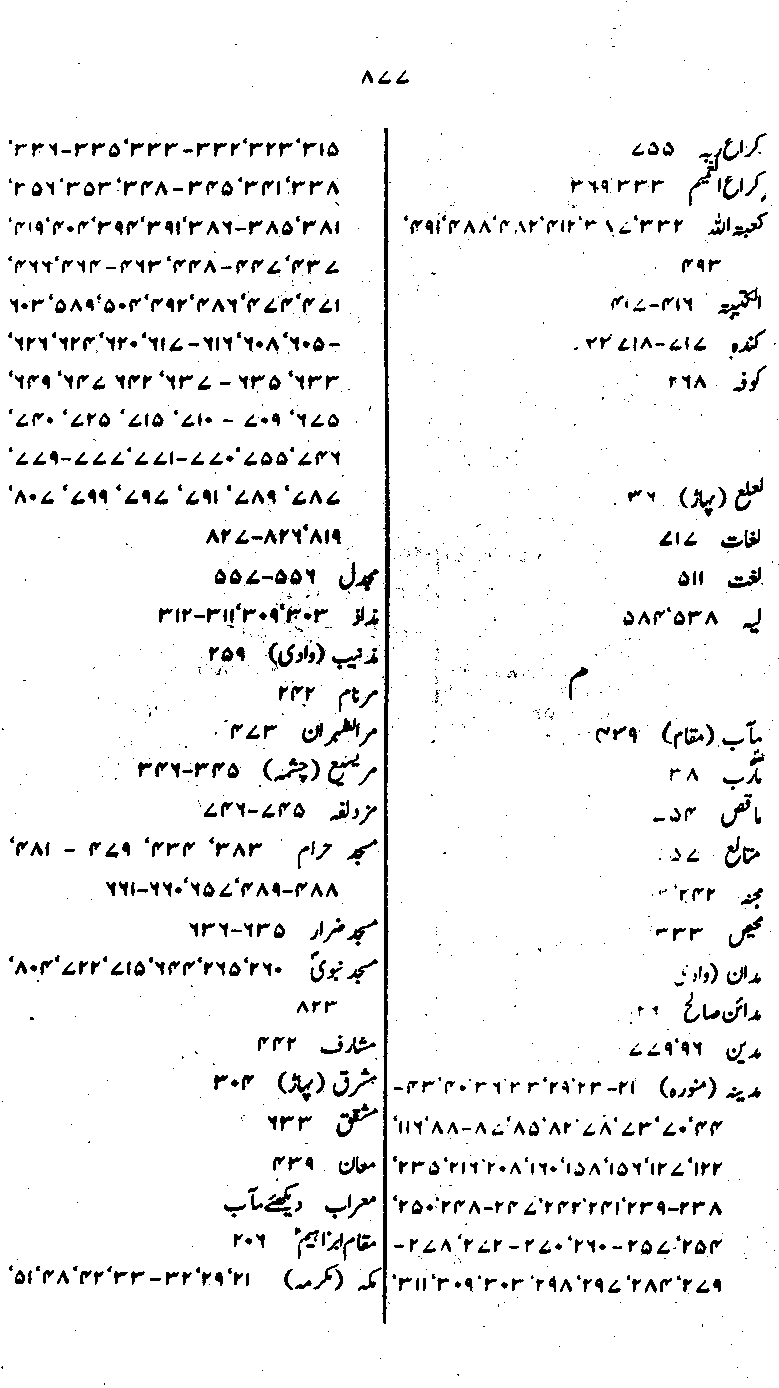 ۸۷۷
کراع ربہ ۷۵۵
کراع الغمیم ۳۳۳،۳۶۹
کعبۃ اللہ ۳۳۲،۳۸۷،۴۱۲،۴۸۲،۴۸۸،۴۹۱،
۴۹۳
الکتیبۃ ۴۱۶-۴۱۷
کندہ ۷۱۷-۷۱۸
کوفہ ۲۶۸
لعلع (پہاڑ) ۳۶
لغات ۷۱۷
لغت ۵۱۱
لیہ ۵۳۸،۵۸۴
م
مآب (مقام) ۴۳۹
مآرب ۳۸
ماقص ۵۴
متالع ۵۷
مجنہ ۲۴۲
محیص ۳۳۳
مدان (وادی
مدائن صالح
مدین ۹۶،۷۷۹
مدینہ (منورہ) ۲۱-۲۳،۲۹،۳۳،۳۶،۴۰،۴۳-
۴۴،۷۰،۷۳،۷۸،۸۲،۸۵،۸۷-۸۸،۱۱۶،
۱۲۲،۱۲۷،۱۵۶،۱۵۸،۱۶۰،۲۰۸،۲۱۶،۲۳۵،
۲۳۸-۲۳۹،۲۴۱،۲۴۲،۲۴۷-۲۴۸،۲۵۰،
۲۵۴،۲۵۷-۲۶۰،۲۷۰-۲۷۲،۲۷۸-
۲۷۹،۲۸۴،۲۹۷،۲۹۸،۳۰۳،۳۰۹،۳۱۱،
۳۱۵،۳۲۳،۳۳۲-۳۳۳،۳۳۵-۳۳۶،
۳۳۸،۳۴۱،۳۴۵-۳۴۸،۳۵۳،۳۵۶،
۳۸۱،۳۸۵-۳۸۶،۳۹۱،۳۹۴،۴۰۴،۴۱۹،
۴۳۷،۴۴۷-۴۴۸،۴۶۳-۴۶۴،۴۶۶،
۴۷۱،۴۷۴،۴۸۶،۴۹۲،۵۰۴،۵۸۹،۶۰۳
-۶۰۵،۶۰۸،۶۱۶-۶۱۷،۶۲۰،۶۲۴،۶۲۶،
۶۳۳،۶۳۵-۶۳۷،۶۴۲،۶۴۷،۶۴۹،
۶۷۵،۷۰۹-۷۱۰،۷۱۵،۷۲۵،۷۴۰،
۷۴۶،۷۵۵،۷۷۰-۷۷۱،۷۷۷-۷۷۹،
۷۸۷،۷۸۹،۷۹۱،۷۹۷،۷۹۹،۸۰۷،
۸۱۹،۸۲۶-۸۲۷
مجدل ۵۵۶-۵۵۷
مذاد ۳۰۳،۳۰۹،۳۱۱-۳۱۲
مذنیب (وادی) ۲۵۹
مرنام ۲۴۲
مرالظہران ۴۷۳
مریسیع (چشمہ) ۳۴۵-۳۴۶
مزدلفہ ۷۴۵-۷۴۶
مسجد حرام ۳۸۳، ۴۳۴، ۴۷۹ - ۴۸۱،
۴۸۸-۴۸۹،۶۵۷،۶۶۰-۶۶۱
مسجد ضرار ۶۳۵-۶۳۶
مسجد نبویؐ ۲۶۰،۲۶۵،۶۴۴،۷۱۵،۷۲۲،۸۰۴،
۸۲۳
مشارف ۴۴۲
مشرق (پہاڑ) ۳۰۴
مشقق ۶۳۳
معان ۴۳۹
معراب دیکھئے مآب
مقام ابراہیمؑ ۲۰۶
مکہ (مکرمہ) ۲۱،۲۹،۳۲-۳۳،۴۲،۴۸،۵۱،